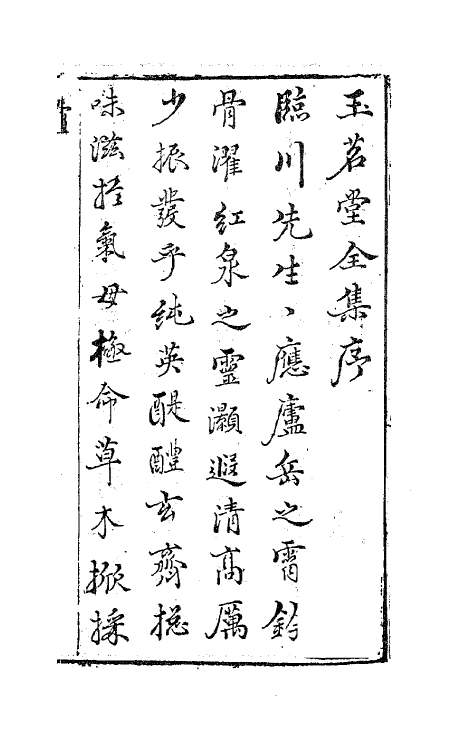 玉茗堂全集序
臨川先生〻應廬岳之霄鈐
骨濯紅泉之靈灝遐清高厲
少振發乎純英醍醴玄齊捴
味滋挃氣母極命草木掀採